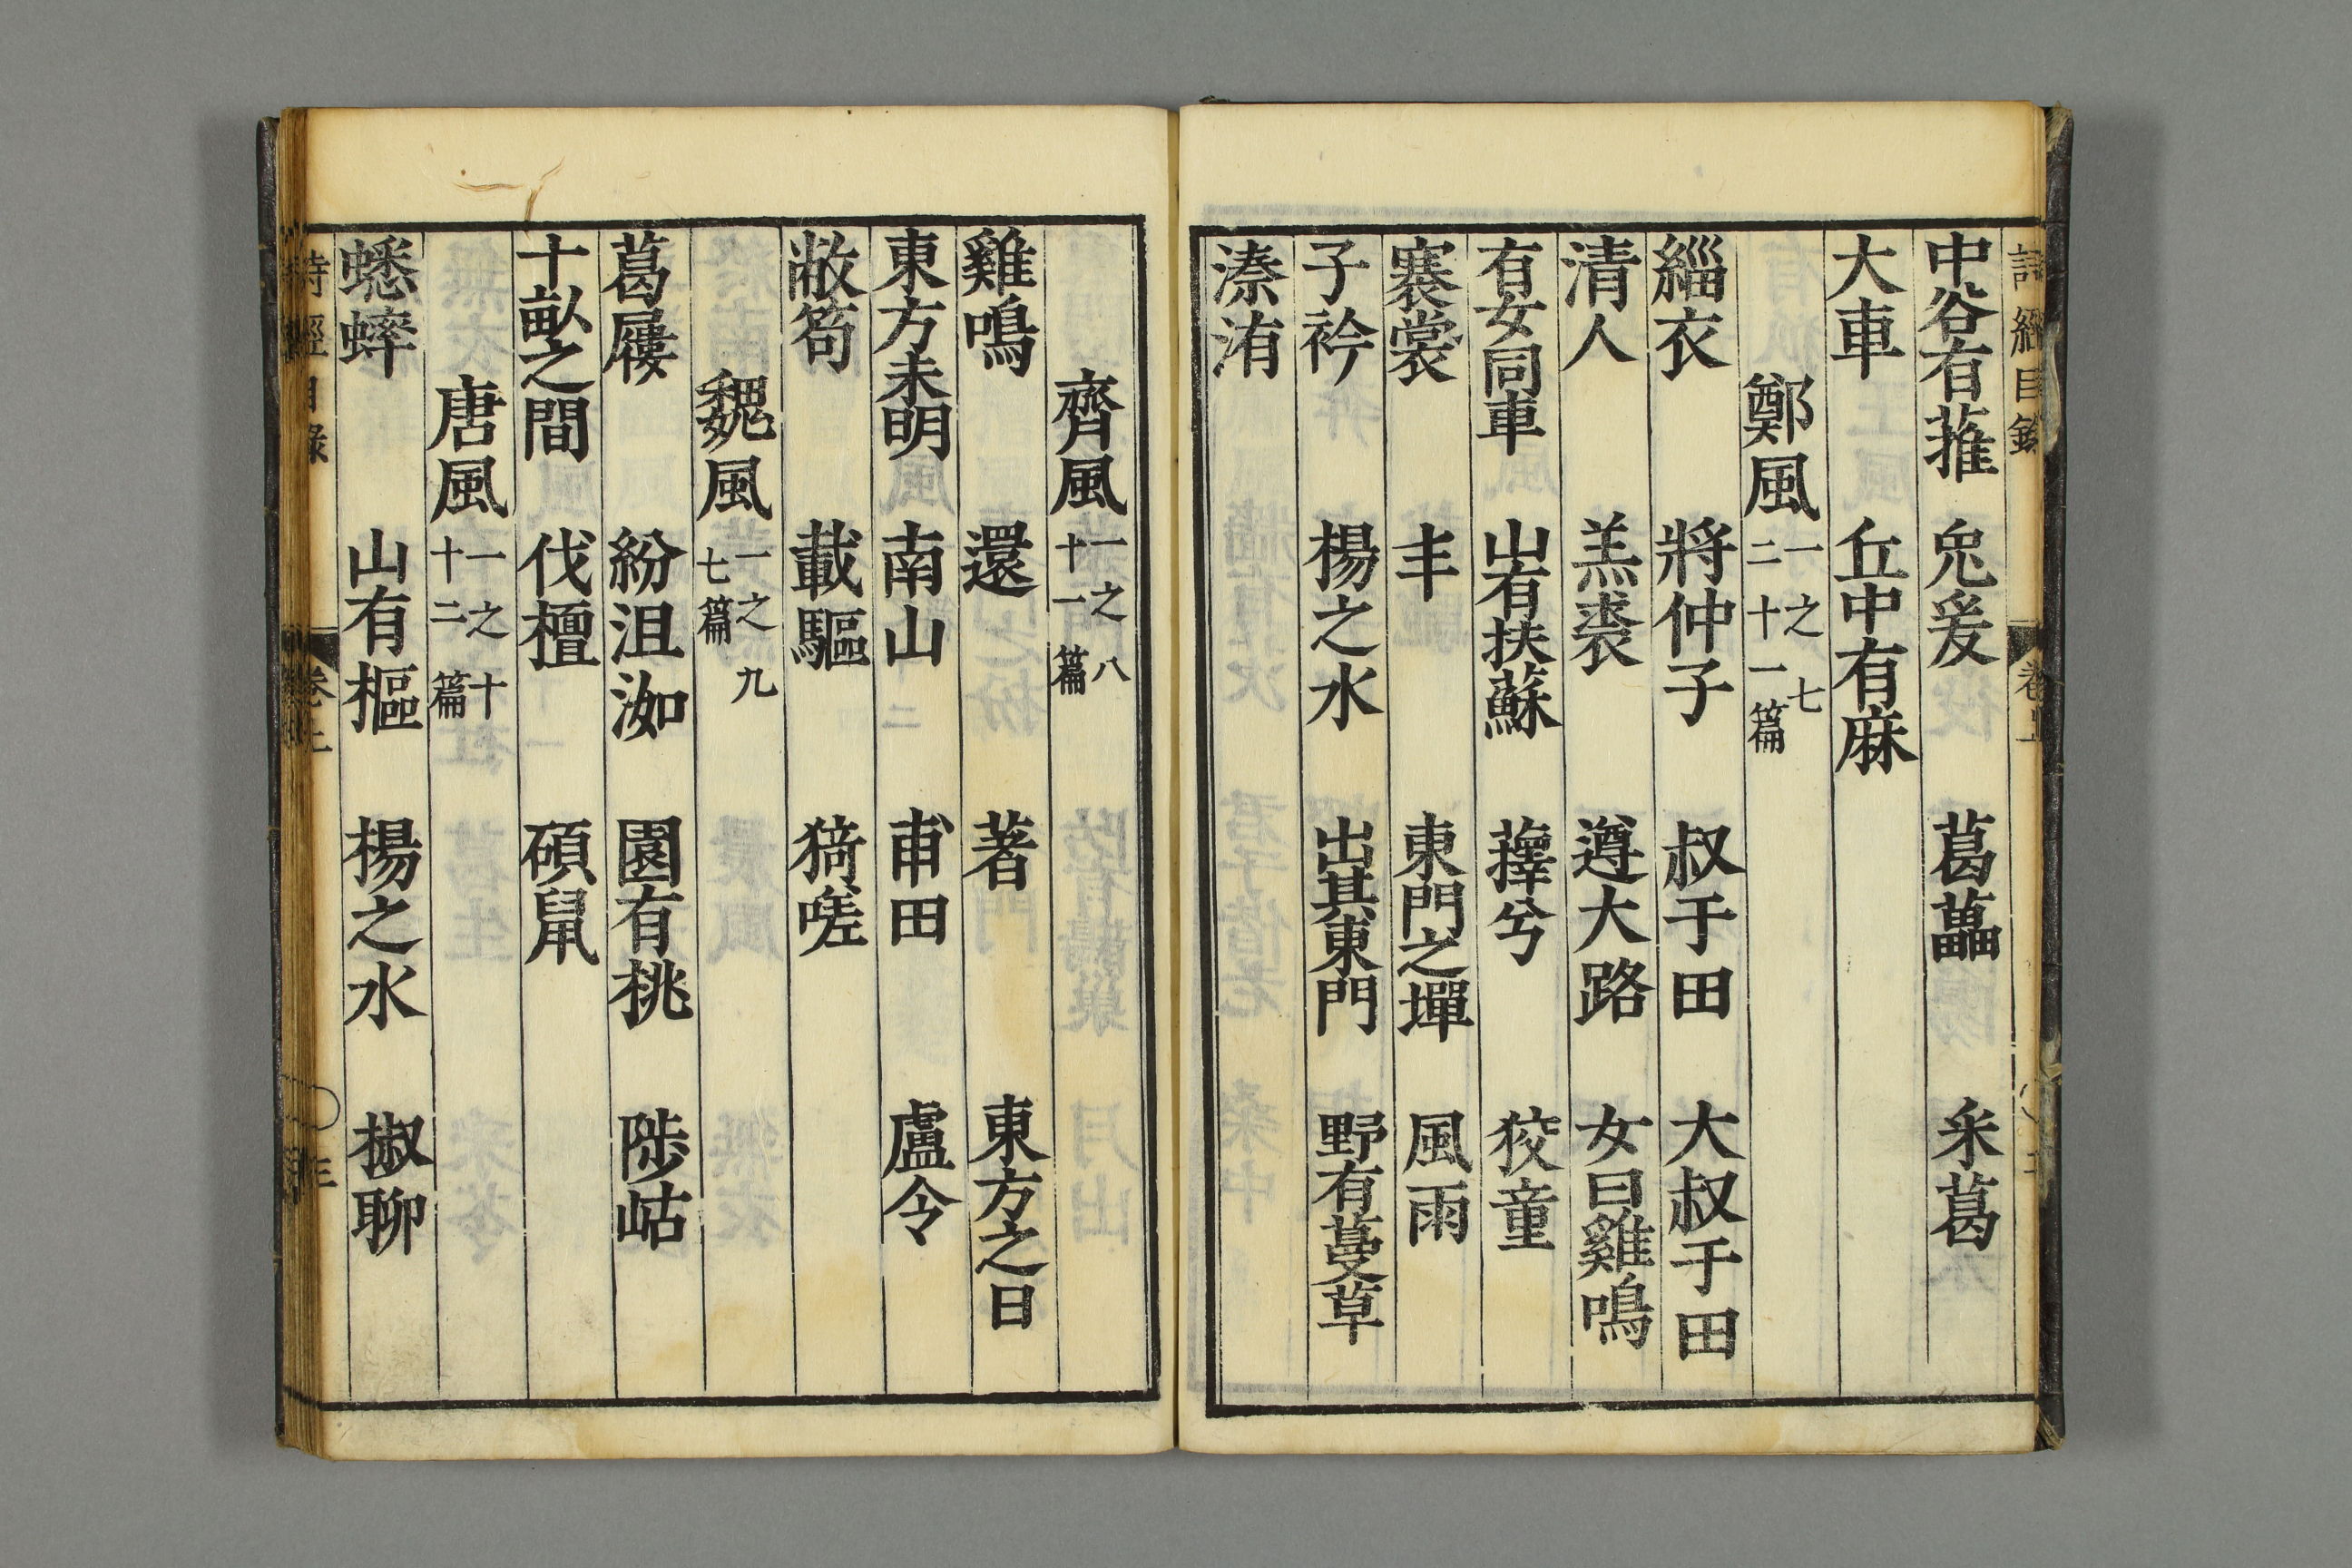 詩經目錄 卷上
中谷有蓷 兔爰 葛藟 采葛
大車 丘中有麻
鄭風 一之七 二十一篇
緇衣 將仲子 叔于田 大叔于田
清人 羔裘 遵大路 女曰雞鳴
有女同車 山有扶蘇 蘀兮 狡童
褰裳 丰 東門之墠 風雨
子衿 揚之水 出其東門 野有蔓草
溱洧
齊風 一之八 十一篇
雞鳴 還 著 東方之日
東方未明 南山 甫田 盧令
敝笱 載驅 猗嗟
魏風 一之九 七篇
葛屨 汾沮洳 園有桃 陟岵
十畝之間 伐檀 碩鼠
唐風 一之十 十二篇
蟋蟀 山有樞 揚之水 椒聊
詩經目錄 卷上 三